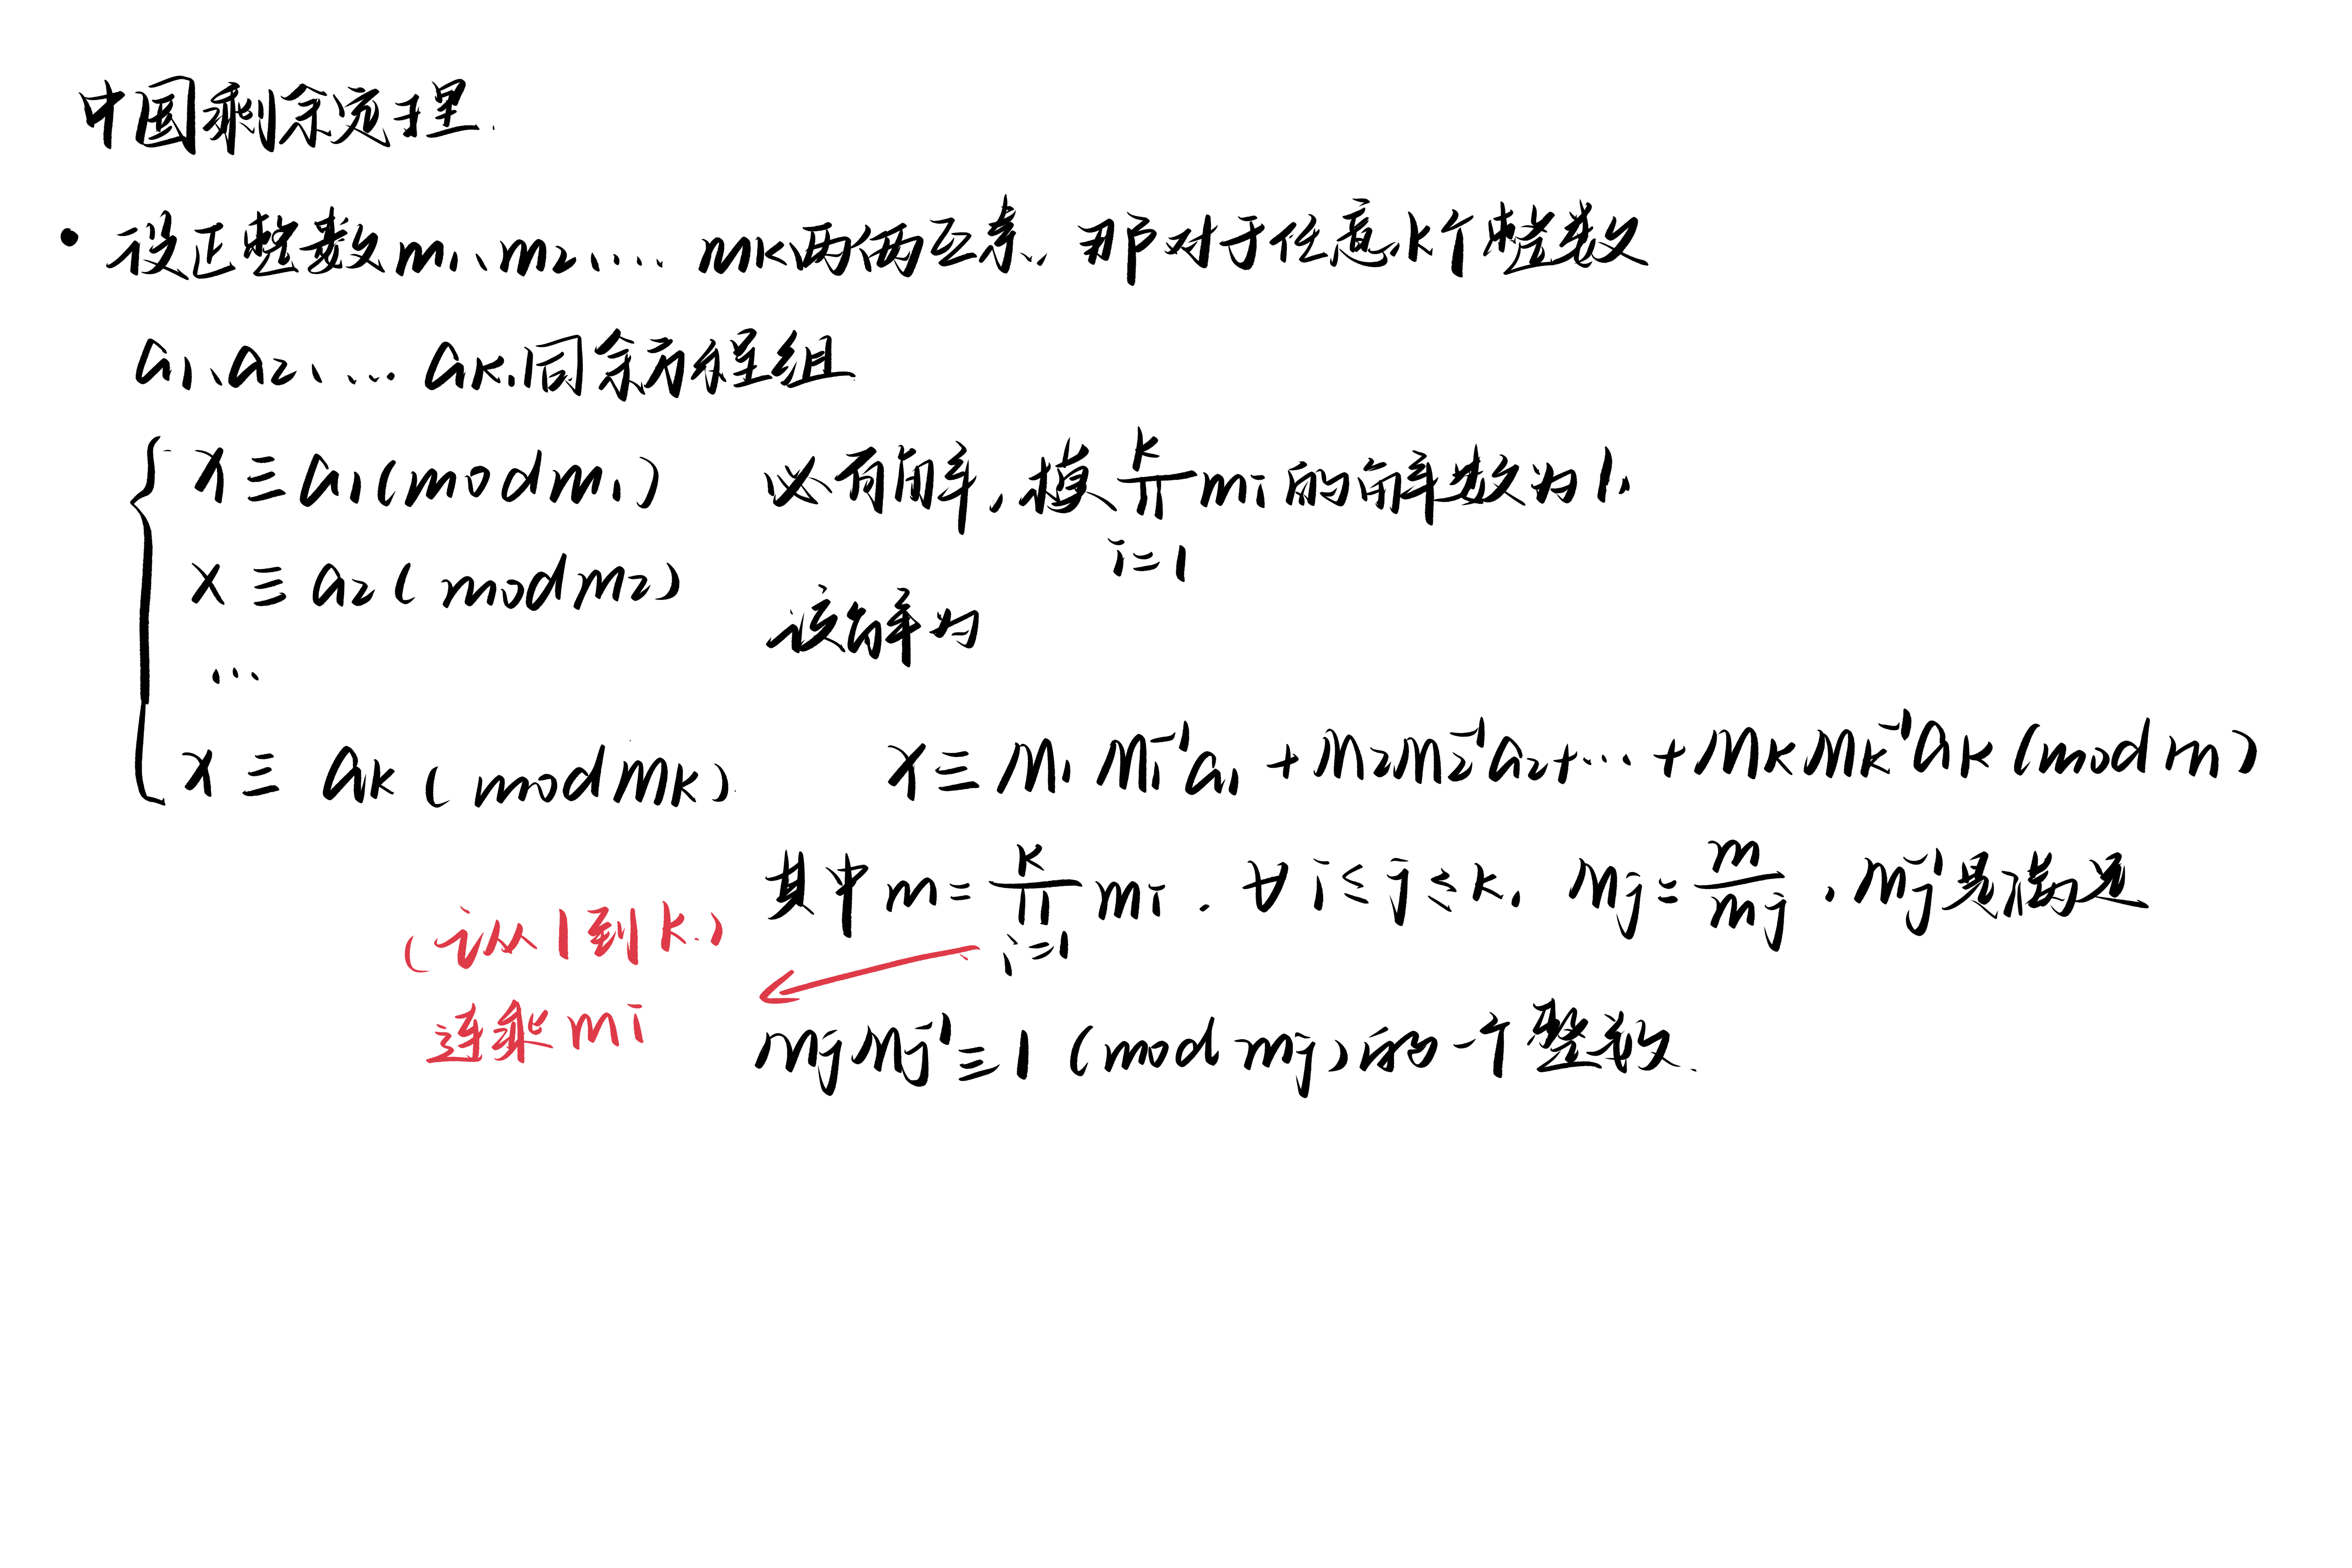 中国剩余定理.
• 设正整数m₁、m₂、... mₖ两两互素, 那对于任意k个整数
a₁、a₂、... aₖ.同余方程组
x ≡ a₁(mod m₁)
必有解,模 ∏ᵢ₌₁ᵏ mᵢ 的解数为1.
x ≡ a₂(mod m₂)
该解为
...
x ≡ aₖ(mod mₖ)
x ≡ M₁M₁⁻¹a₁+M₂M₂⁻¹a₂+...+MₖMₖ⁻¹aₖ(mod m)
其中m=∏ᵢ₌₁ᵏ mᵢ. ∀ 1≤j≤k, Mⱼ=m/mⱼ, Mⱼ⁻¹是满足
(i从1到k.)
连乘mi
MⱼMⱼ⁻¹≡1(mod mⱼ)的一个整数.